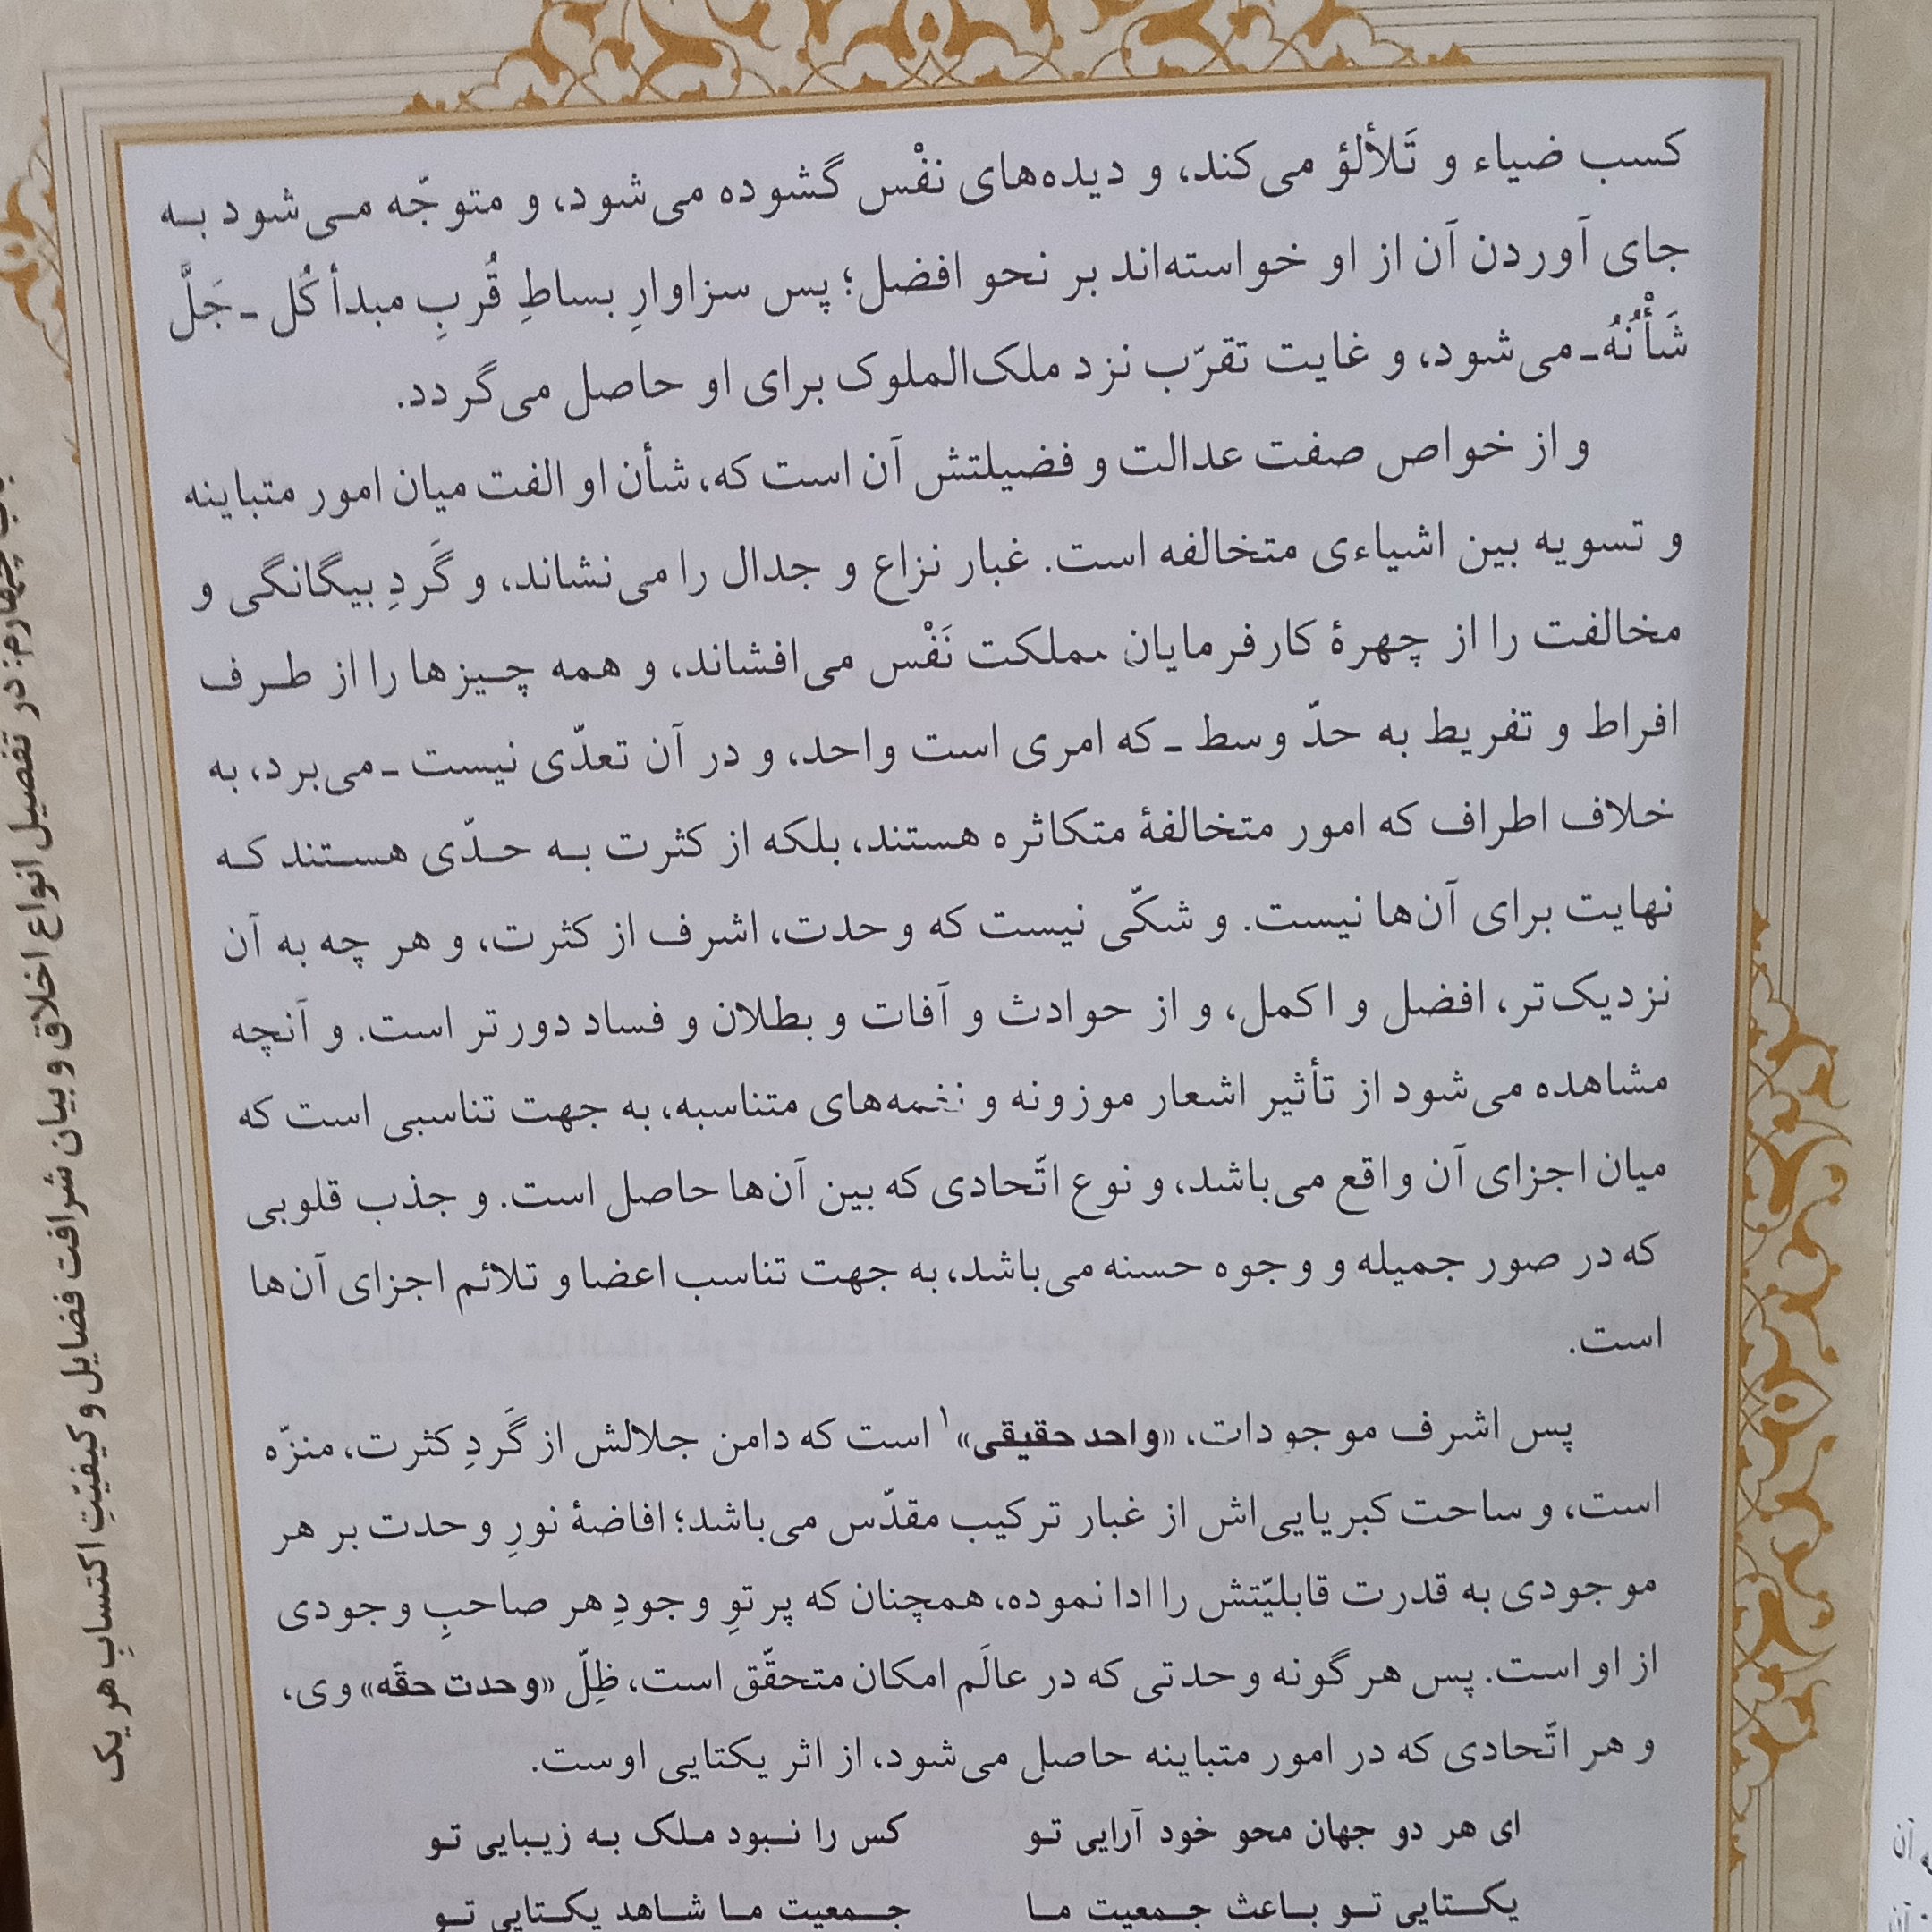 کسب ضیاء و تَلألؤ می‌کند، و دیده‌های نفْس گشوده می‌شود، و متوجّه مـی‌شود بـه
جای آوردن آن از او خواسته‌اند بر نحو افضل؛ پس سزاوارِ بساطِ قُربِ مبدأ کُل ـ جَلَّ
شَأْنُهُ ـ می‌شود، و غایت تقرّب نزد ملک‌الملوک برای او حاصل می‌گردد.
و از خواص صفت عدالت و فضیلتش آن است که، شأن او الفت میان امور متباینه
و تسویه بین اشیاءی متخالفه است. غبار نزاع و جدال را می‌نشاند، و گَردِ بیگانگی و
مخالفت را از چهرهٔ کارفرمایان مملکت نَفْس می‌افشاند، و همه چـیزها را از طـرف
افراط و تفریط به حدّ وسط ـ که امری است واحد، و در آن تعدّی نیست ـ می‌برد، به
خلاف اطراف که امور متخالفهٔ متکاثره هستند، بلکه از کثرت بـه حـدّی هسـتند کـه
نهایت برای آن‌ها نیست. و شکّی نیست که وحدت، اشرف از کثرت، و هر چه به آن
نزدیک‌تر، افضل و اکمل، و از حوادث و آفات و بطلان و فساد دورتر است. و آنچه
مشاهده می‌شود از تأثیر اشعار موزونه و نغمه‌های متناسبه، به جهت تناسبی است که
میان اجزای آن واقع می‌باشد، و نوع اتّحادی که بین آن‌ها حاصل است. و جذب قلوبی
که در صور جمیله و وجوه حسنه می‌باشد، به جهت تناسب اعضا و تلائم اجزای آن‌ها
است.
پس اشرف موجودات، «واحد حقیقی»۱ است که دامن جلالش از گَردِ کثرت، منزّه
است، و ساحت کبریایی‌اش از غبار ترکیب مقدّس می‌باشد؛ افاضهٔ نورِ وحدت بر هر
موجودی به قدرت قابلیّتش را ادا نموده، همچنان که پرتوِ وجودِ هر صاحبِ وجودی
از او است. پس هر گونه وحدتی که در عالَم امکان متحقّق است، ظِلّ «وحدت حقّه» وی،
و هر اتّحادی که در امور متباینه حاصل می‌شود، از اثر یکتایی اوست.
ای هر دو جهان محو خود آرایی تـو کس را نـبود مـلک بـه زیـبایی تـو
یکـتایی تـو بـاعث جـمعیت مـا جـمعیت مـا شـاهد یکـتایی تـو
چهارم: در تفصیل انواع اخلاق و بیان شرافت فضایل و کیفیّتِ اکتسابِ هر یک